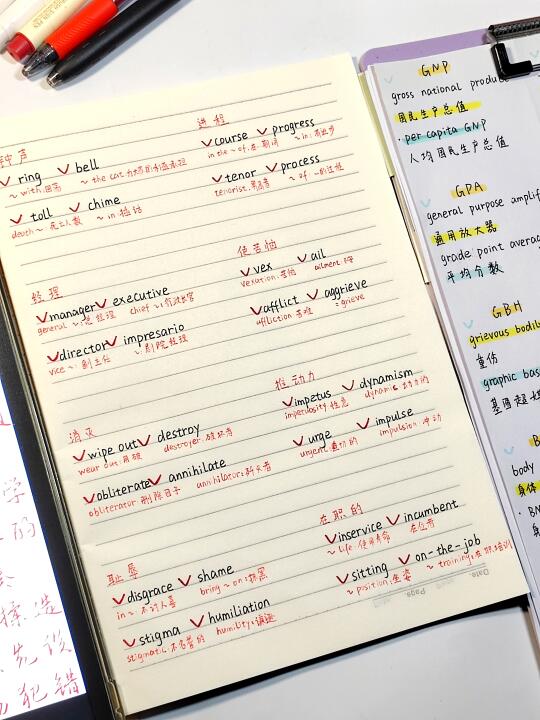 钟声
ring bell
~ with:回荡
toll chime
death ~ 死亡人数 ~ in:插话
进程
course progress
in the ~ of:在…期间 ~ in:有进步
tenor process
tenorist:男高音 ~ of:…的过程
经理
manager executive
general ~:总经理 chief ~:行政长官
director impresario
vice ~:副主任 ~:剧院经理
使苦恼
vex ail
vexation:苦恼 ailment:
afflict aggrieve
affliction:苦难 = grieve
消灭
wipe out destroy
wear out:用破 destroyer:破坏者
obliterate annihilate
obliterator:删除因子 annihilator:歼灭者
推动力
impetus dynamism
impetuosity:性急 dynamic:动力的
urge impulse
urgent:迫切的 impulsion:冲动
耻辱
disgrace shame
in ~:不讨人喜 bring ~ on:抹黑
stigma humiliation
stigmatic:不名誉的 humility:谦逊
在职的
inservice incumbent
~ life:使用寿命 在位者
sitting on-the-job
~ position:坐姿 ~ training:在职培训
Date.
Page.
GNP
gross national produc
国民生产总值
· per capita GNP
人均国民生产总值
GPA
general purpose amplif
通用放大器
grade point averag
平均分数
GBH
grievous bodil
重伤
graphic bas
B
body
身体
· BN
身
学
的
择 造
先 谈
犯 错